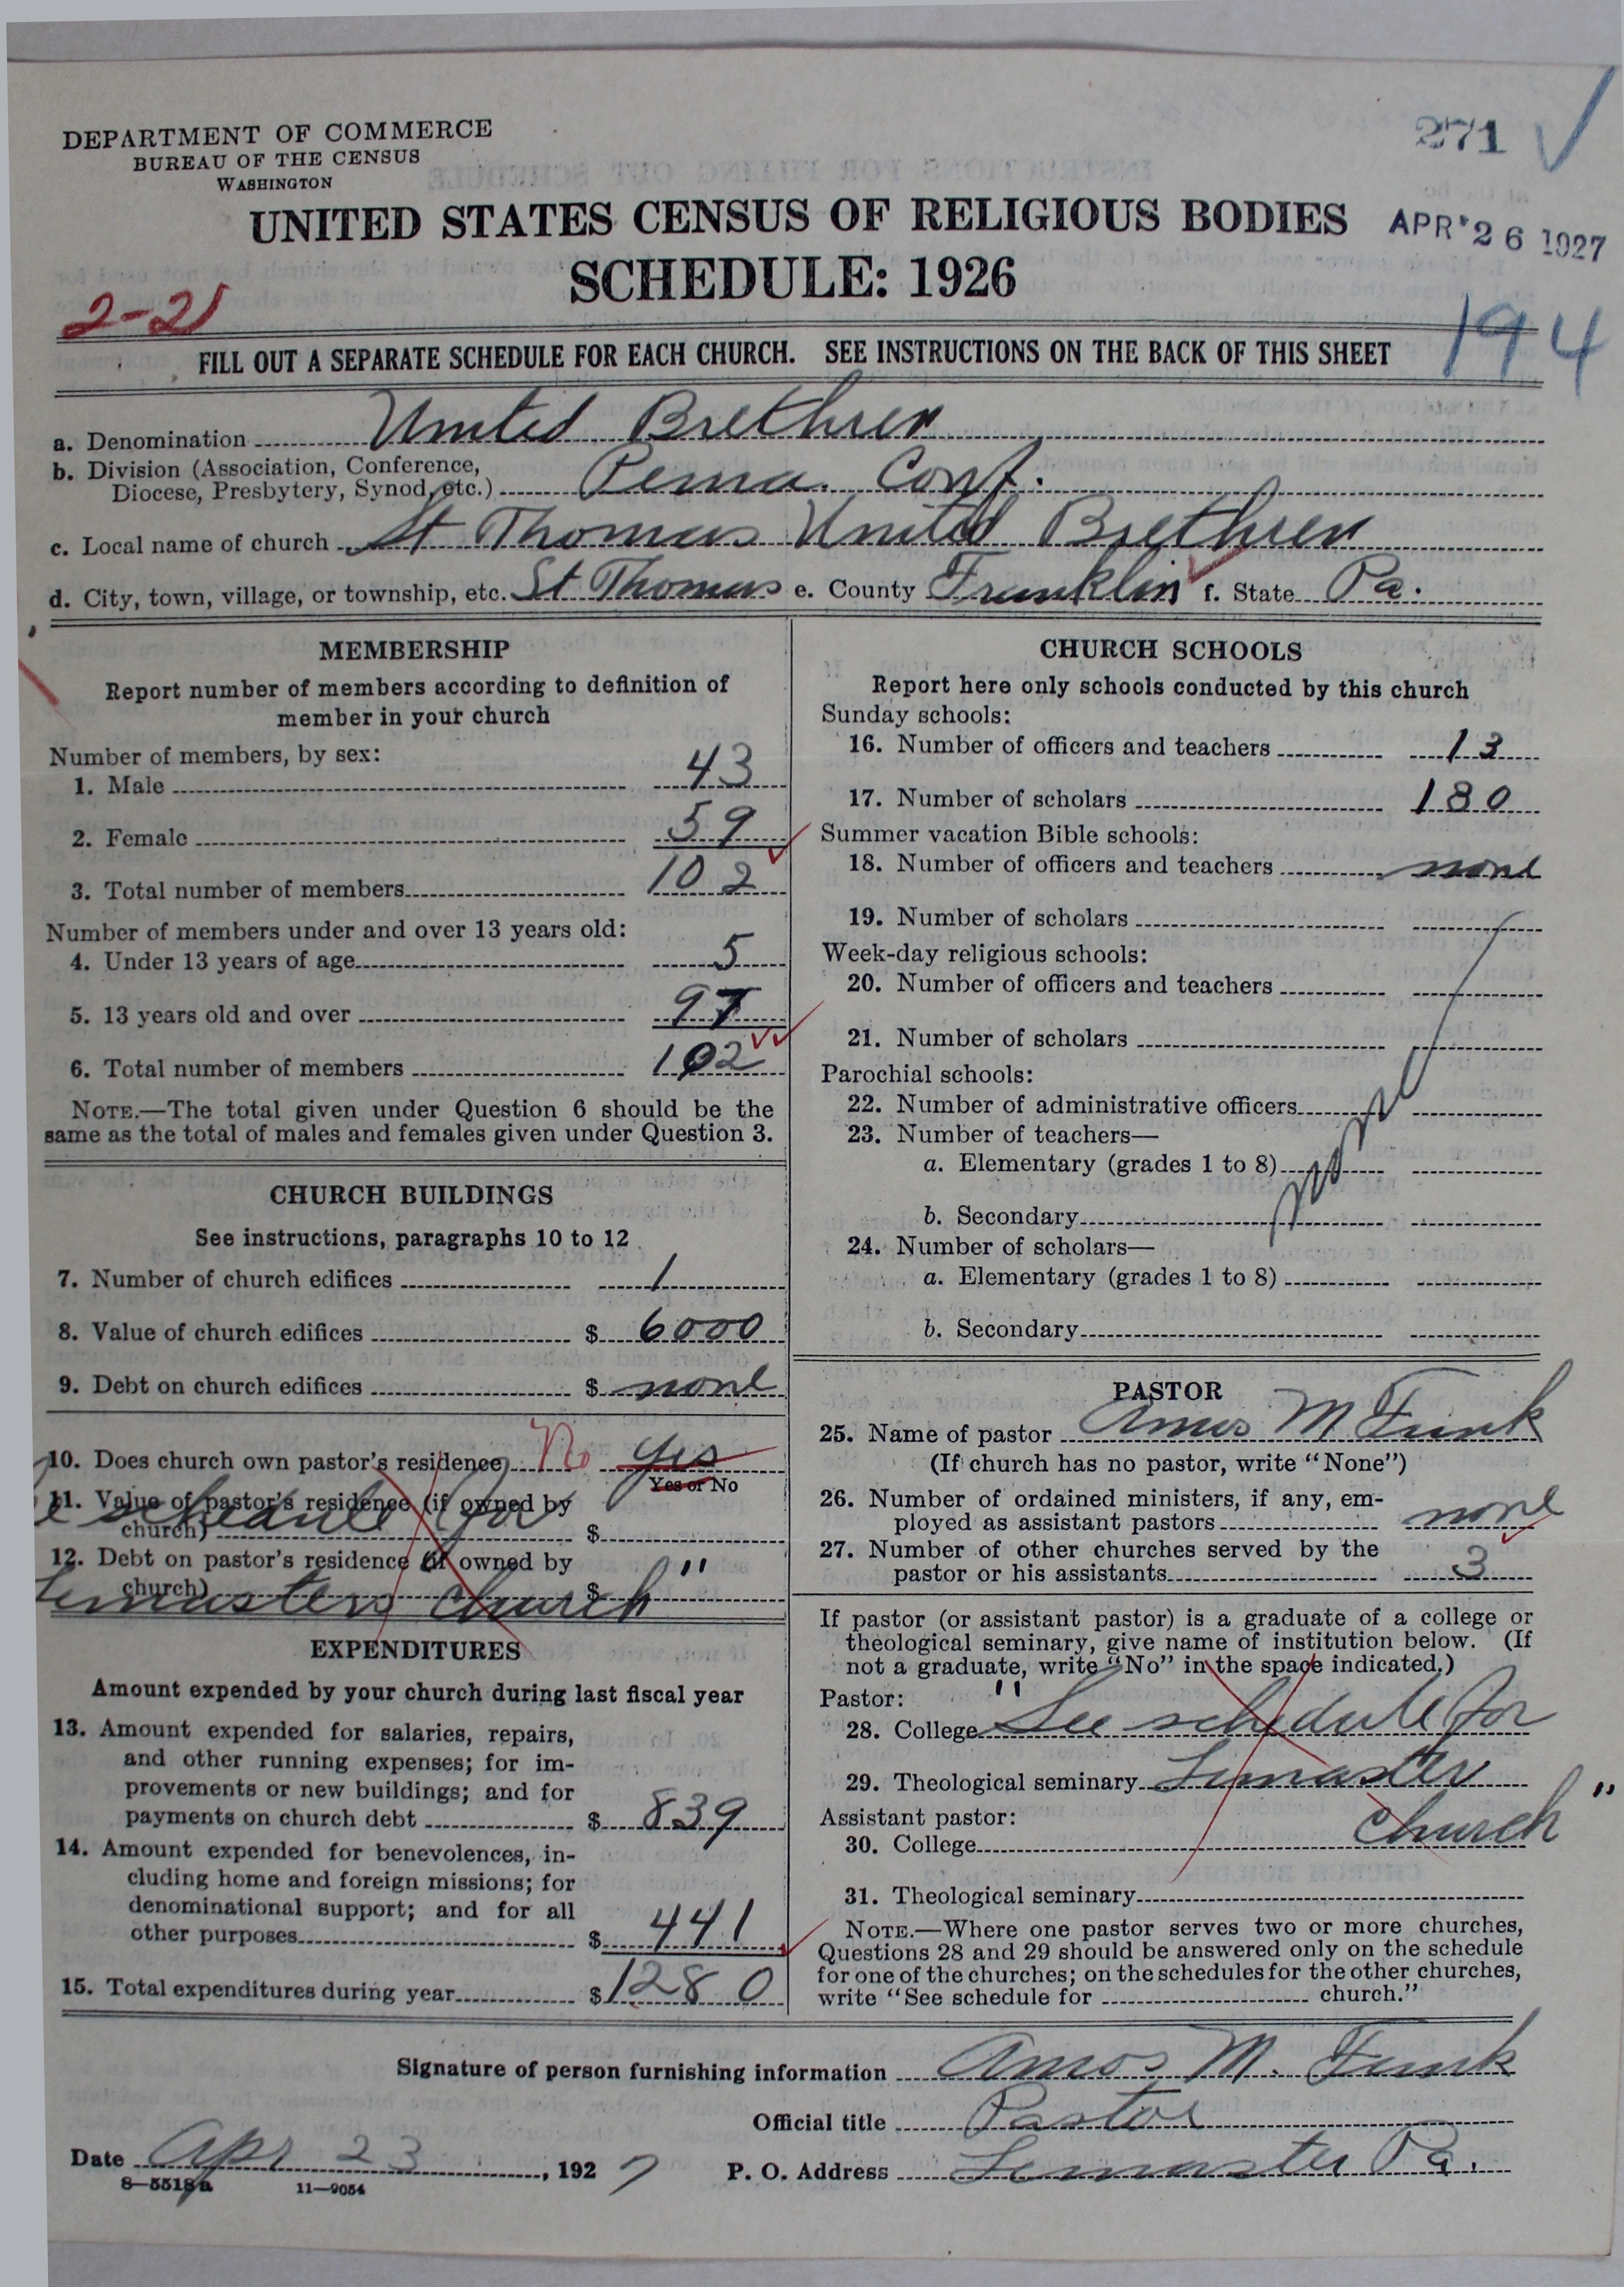 DEPARTMENT OF COMMERCE
BUREAU OF THE CENSUS
WASHINGTON
271
UNITED STATES CENSUS OF RELIGIOUS BODIES
APR 26 1927
SCHEDULE: 1926
2-21
194
FILL OUT A SEPARATE SCHEDULE FOR EACH CHURCH. SEE INSTRUCTIONS ON THE BACK OF THIS SHEET
a. Denomination United Brethren
b. Division (Association, Conference,
Diocese, Presbytery, Synod, etc.) Penna. Conf.
c. Local name of church St Thomas United Brethren
d. City, town, village, or township, etc. St Thomas e. County Franklin f. State Pa.
MEMBERSHIP
Report number of members according to definition of
member in your church
Number of members, by sex:
1. Male 43
2. Female 59
3. Total number of members 102
Number of members under and over 13 years old:
4. Under 13 years of age 5
5. 13 years old and over 97
6. Total number of members 102
NOTE.—The total given under Question 6 should be the
same as the total of males and females given under Question 3.
CHURCH BUILDINGS
See instructions, paragraphs 10 to 12
7. Number of church edifices 1
8. Value of church edifices $ 6000
9. Debt on church edifices $ none
10. Does church own pastor's residence No Yes
Yes or No
11. Value of pastor's residence (if owned by
church) $
schedule for
12. Debt on pastor's residence (if owned by
church) $
Lemasters church"
EXPENDITURES
Amount expended by your church during last fiscal year
13. Amount expended for salaries, repairs,
and other running expenses; for im-
provements or new buildings; and for
payments on church debt $ 839
14. Amount expended for benevolences, in-
cluding home and foreign missions; for
denominational support; and for all
other purposes $ 441
15. Total expenditures during year $ 1280
CHURCH SCHOOLS
Report here only schools conducted by this church
Sunday schools:
16. Number of officers and teachers 13
17. Number of scholars 180
Summer vacation Bible schools:
18. Number of officers and teachers none
19. Number of scholars
Week-day religious schools:
20. Number of officers and teachers
21. Number of scholars
Parochial schools:
22. Number of administrative officers
none
23. Number of teachers—
a. Elementary (grades 1 to 8)
b. Secondary
24. Number of scholars—
a. Elementary (grades 1 to 8)
b. Secondary
PASTOR
25. Name of pastor Amos M Funk
(If church has no pastor, write "None")
26. Number of ordained ministers, if any, em-
ployed as assistant pastors none
27. Number of other churches served by the
pastor or his assistants 3
If pastor (or assistant pastor) is a graduate of a college or
theological seminary, give name of institution below. (If
not a graduate, write "No" in the space indicated.)
Pastor:
28. College "See schedule for
29. Theological seminary Lemaster
Assistant pastor:
church"
30. College
31. Theological seminary
NOTE.—Where one pastor serves two or more churches,
Questions 28 and 29 should be answered only on the schedule
for one of the churches; on the schedules for the other churches,
write "See schedule for church."
Signature of person furnishing information Amos M. Funk
Official title Pastor
Date Apr 23, 1927
P. O. Address Lemaster Pa.
8—5518a 11—9054